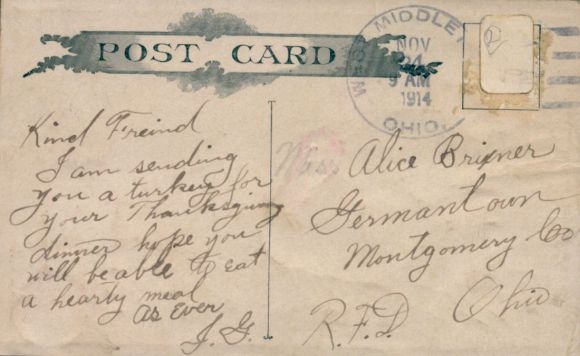 POST CARD
WEST MIDDLET
NOV
24
9 AM
1914
OHIO.
Kind Freind
I am sending
you a turkey for
your Thanksgiving
dinner hope you
will be able to eat
a hearty meal
As Ever
J. G.
Miss Alice Brixner
Germantown
Montgomery Co
Ohio
R.F.D